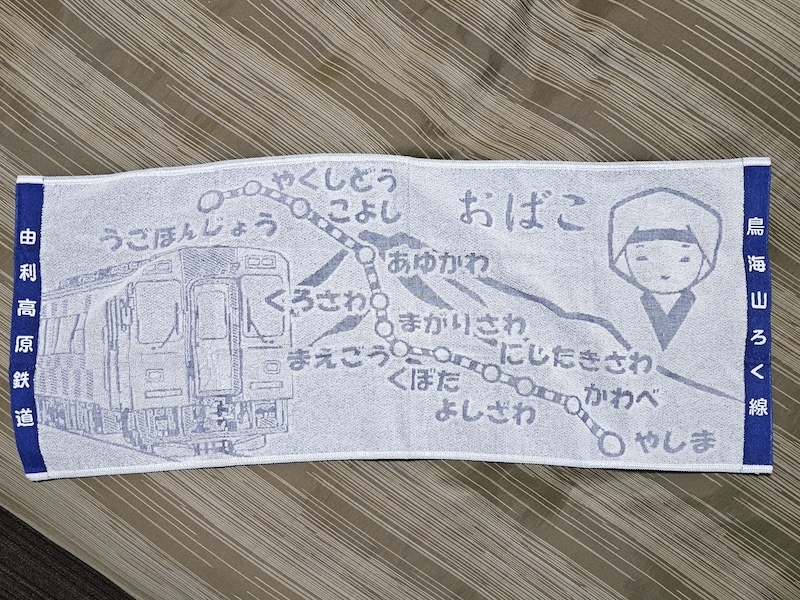 由利高原鉄道
うごほんじょう
やくしどう
こよし
あゆかわ
くろさわ
まがりさわ
まえごう
くぼた
にしたきさわ
よしざわ
かわべ
やしま
おばこ
鳥海山ろく線